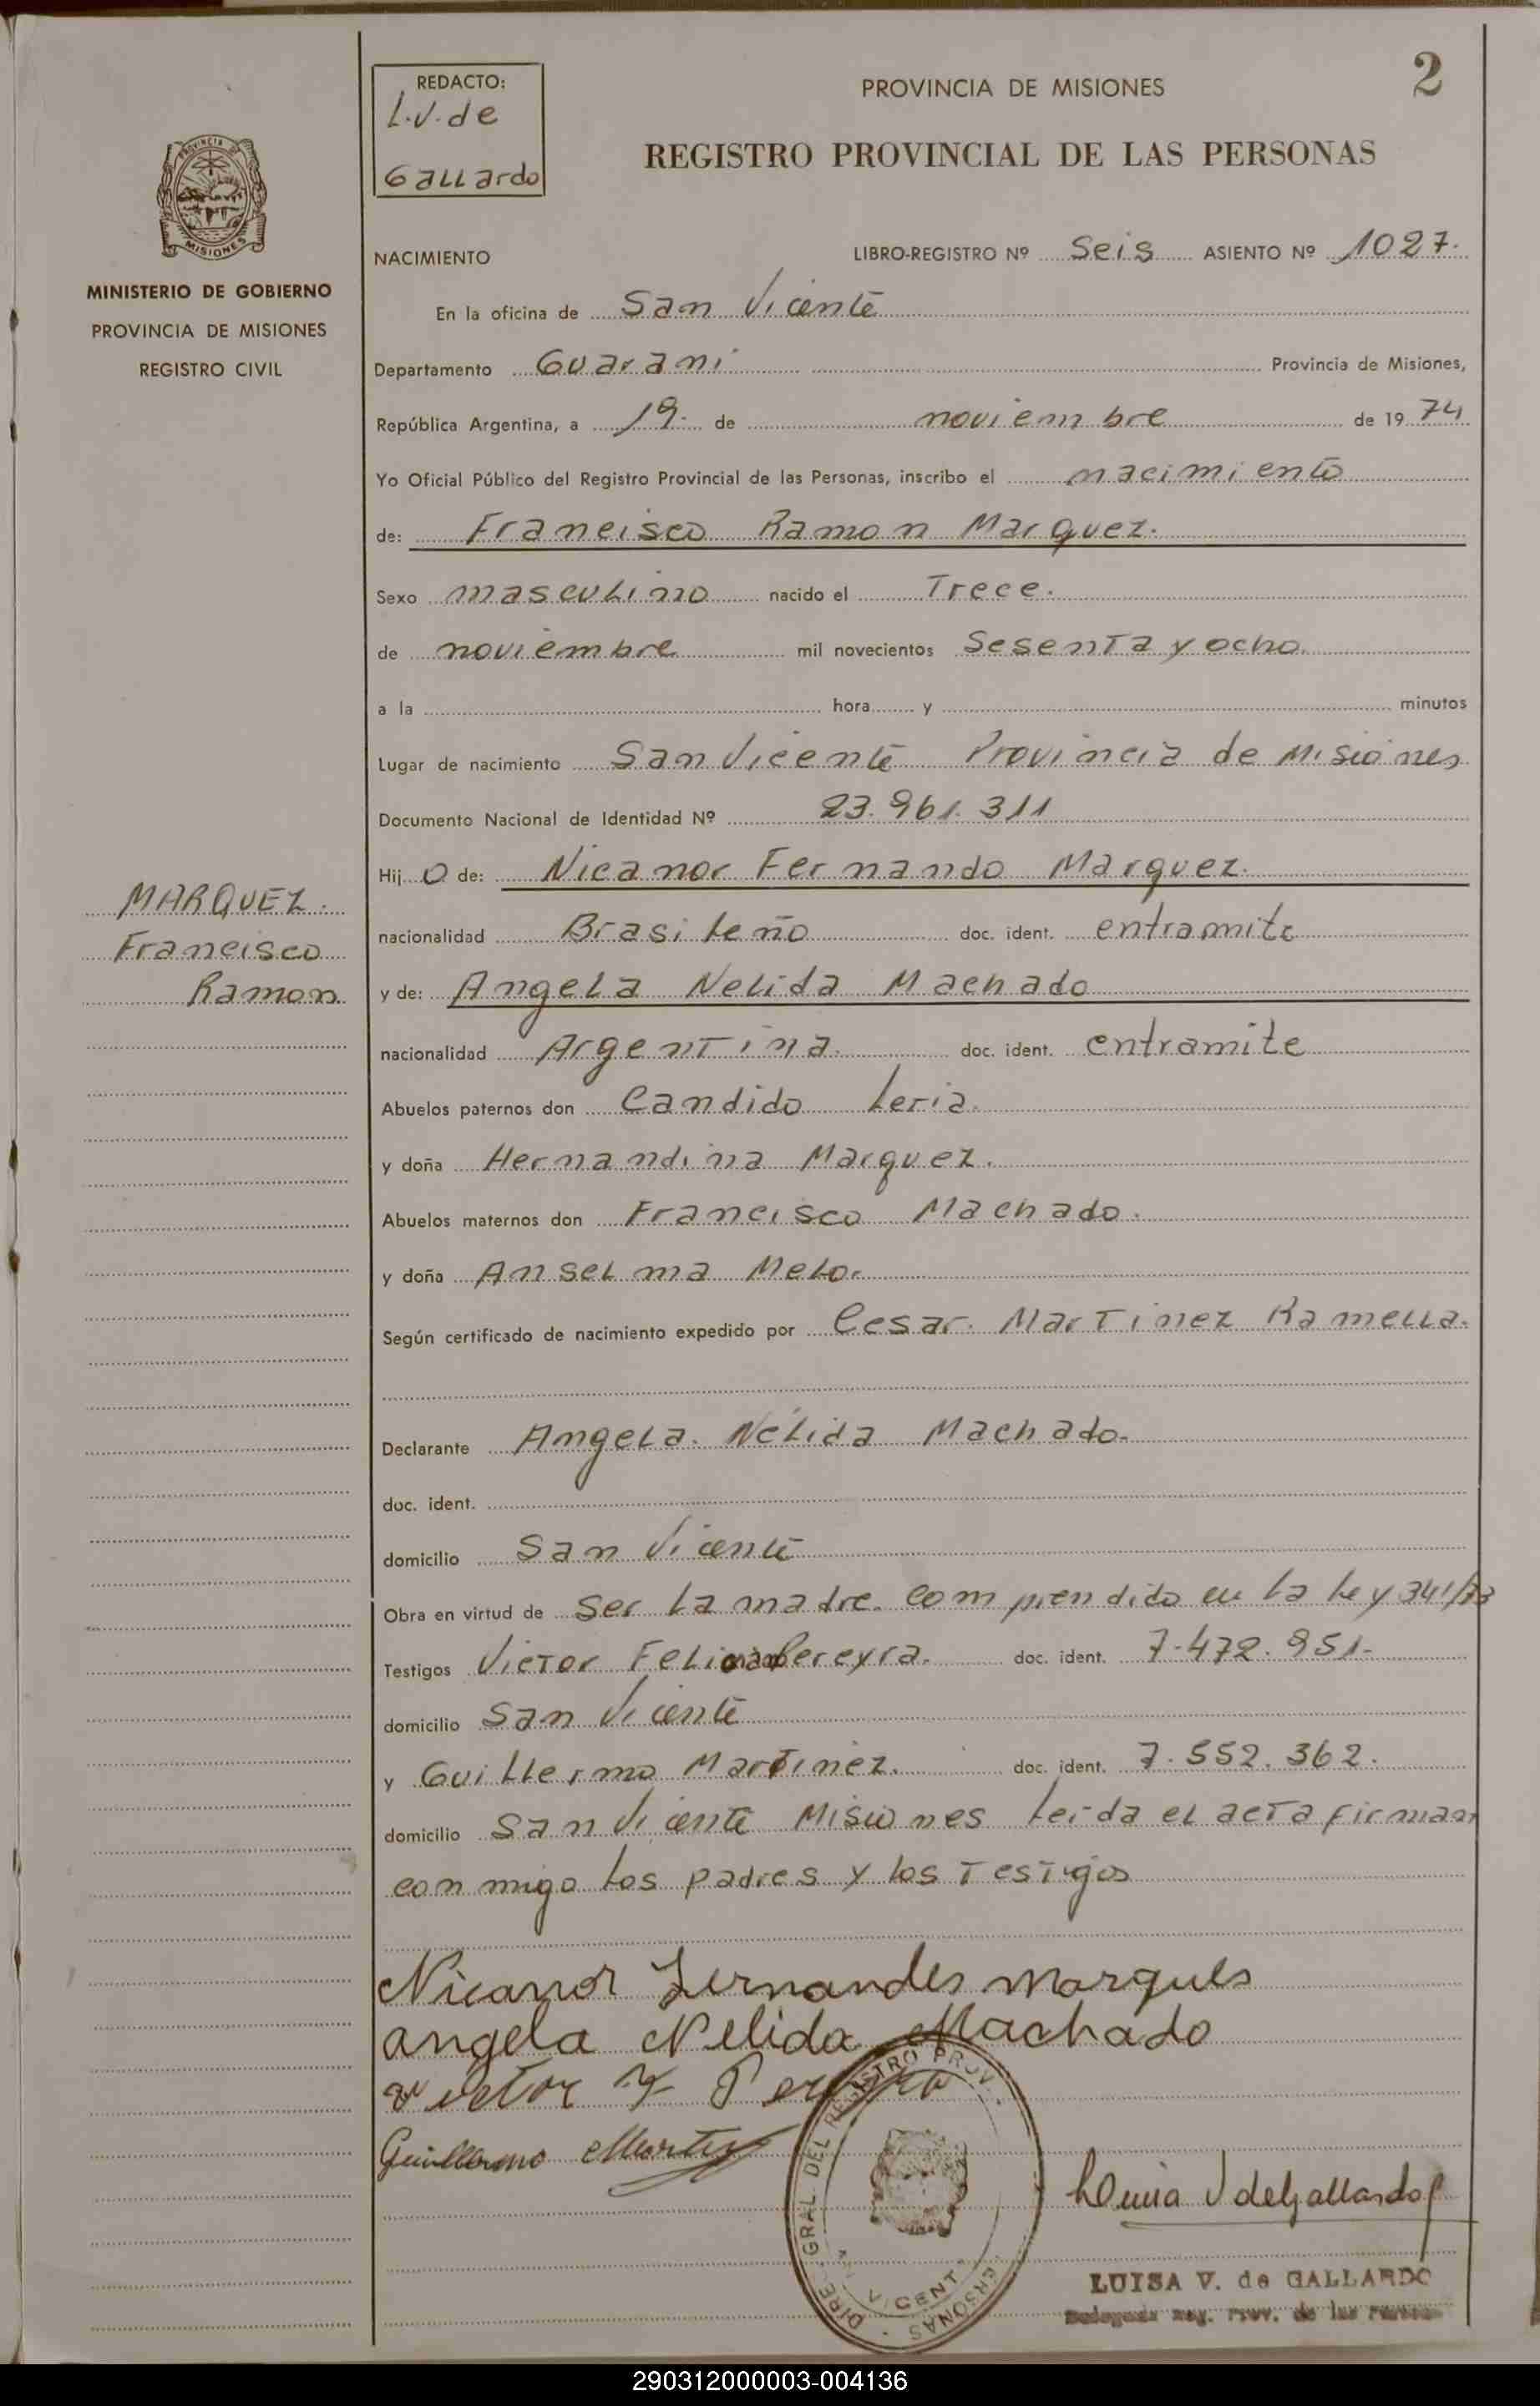 REDACTO:
L.V. de
Gallardo
PROVINCIA DE MISIONES
2
REGISTRO PROVINCIAL DE LAS PERSONAS
PROVINCIA DE
MISIONES
MINISTERIO DE GOBIERNO
PROVINCIA DE MISIONES
REGISTRO CIVIL
NACIMIENTO LIBRO-REGISTRO Nº Seis ASIENTO Nº 1027.
En la oficina de San Vicente
Departamento Guarani Provincia de Misiones,
República Argentina, a 19. de noviembre de 1974
Yo Oficial Público del Registro Provincial de las Personas, inscribo el nacimiento
de: Francisco Ramon Marquez.
Sexo masculino nacido el Trece.
de noviembre mil novecientos Sesenta y ocho.
a la hora y minutos
Lugar de nacimiento San Vicente Provincia de Misiones
Documento Nacional de Identidad Nº 23.961.311
Hijo de: Nicanor Fernando Marquez.
MARQUEZ.
Francisco
Ramon
nacionalidad Brasileño doc. ident. entramite
y de: Angela Nelida Machado
nacionalidad Argentina. doc. ident. entramite
Abuelos paternos don Candido Leria.
y doña Hernandina Marquez.
Abuelos maternos don Francisco Machado.
y doña Anselma Melo.
Según certificado de nacimiento expedido por Cesar. Martinez Ramella.
Declarante Angela. Nélida Machado.
doc. ident.
domicilio San Vicente
Obra en virtud de Ser la madre. comprendido en la ley 341/73
Testigos Victor Pereyra. doc. ident. 7.472.951.
domicilio San Vicente
y Guillermo Martinez. doc. ident. 7.552.362.
domicilio San Vicente Misiones leida el acta firman
con migo los padres y los Testigos
Nicanor Fernandes marques
angela Nelida Machado
victor F Pereyra
Guillermo Martinez
DIREC. GRAL. DEL REGISTRO PROV. PERSONAS
VICENT
Luisa V de Gallardo
LUISA V. de GALLARDO
Delegada Reg. Prov. de las Personas
290312000003-004136